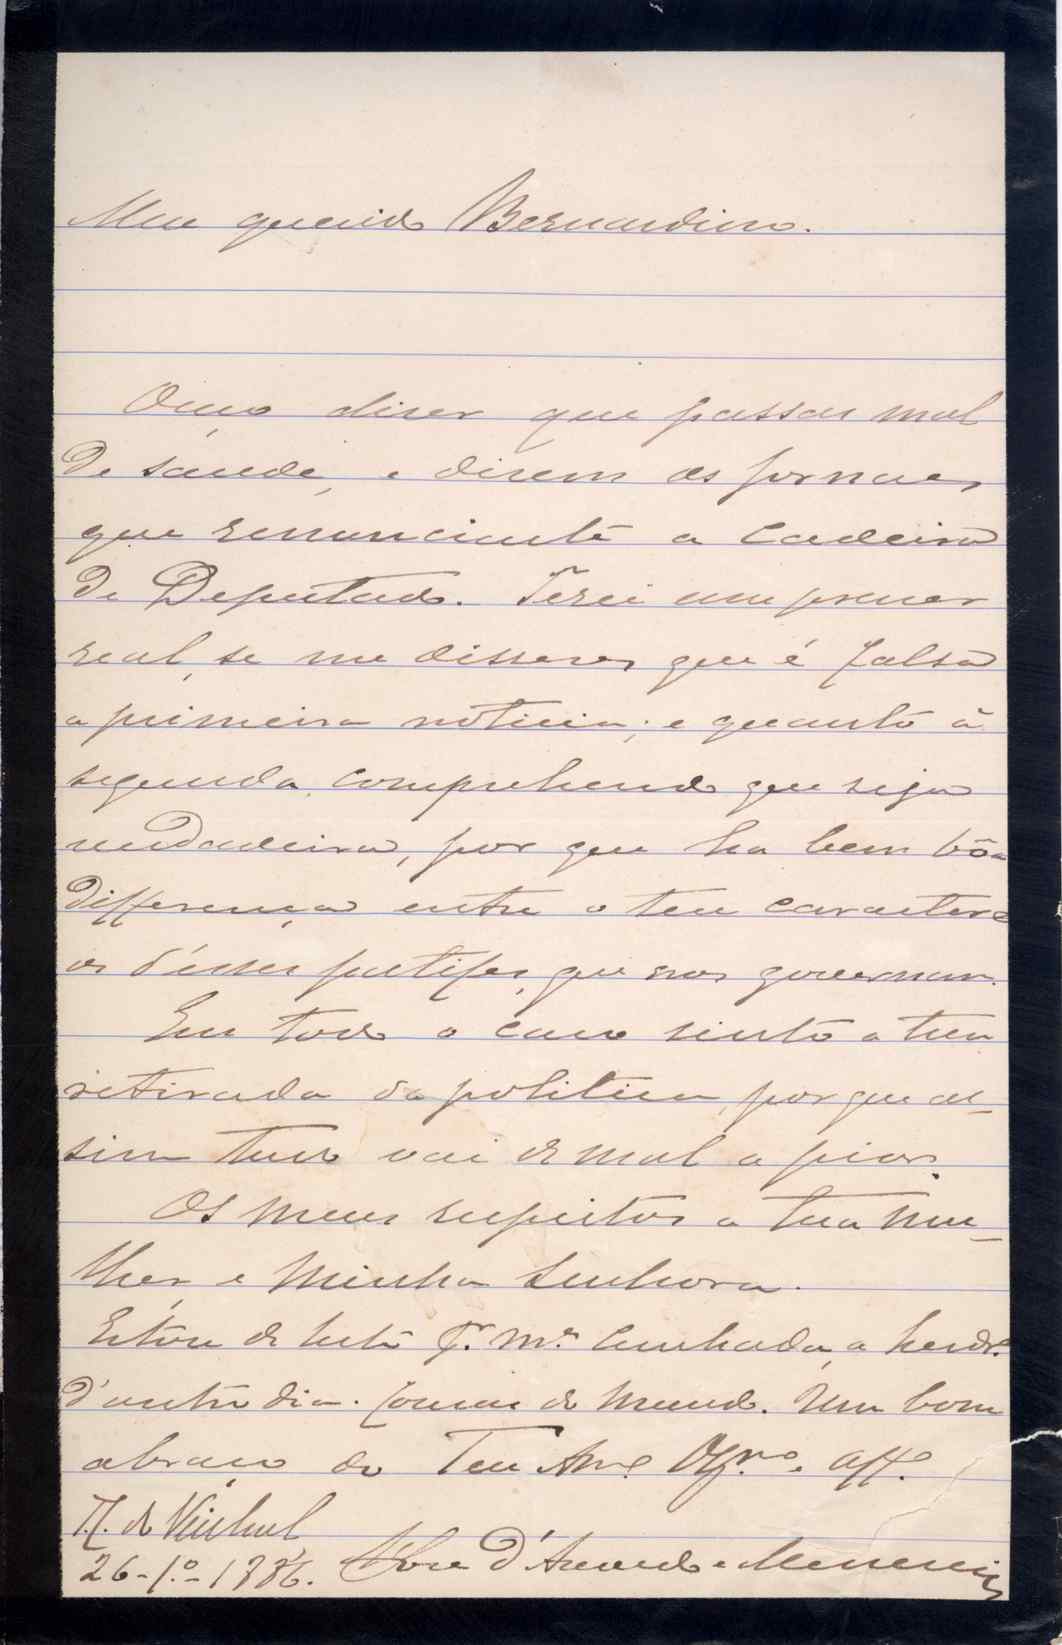 Meu querido Bernardino.
Ouço diser que passas mal
de saude, e disem os jornaes
que renunciaste a cadeira
de Deputado. Terei um praser
real, se me disseres que é falsa
a primeira noticia; e quanto á
segunda, comprehendo que seja
verdadeira, por que ha bem bôa
differença entre o teu caracter e
os d'esses patifes, que nos governam.
Em todo o caso sinto a tua
retirada da politica, por que as-
sim tudo vai de mal a pior.
Os meus respeitos a tua mu-
lher, e Minha Senhora.
Estou de luto p.r m.a Cunhada, a
d'outro dia. Cousas do Mundo. Um bom
abraço do Teu Am.o Obr.o aff.o
de
26-1.º-1886. d'Azevedo e Menezes